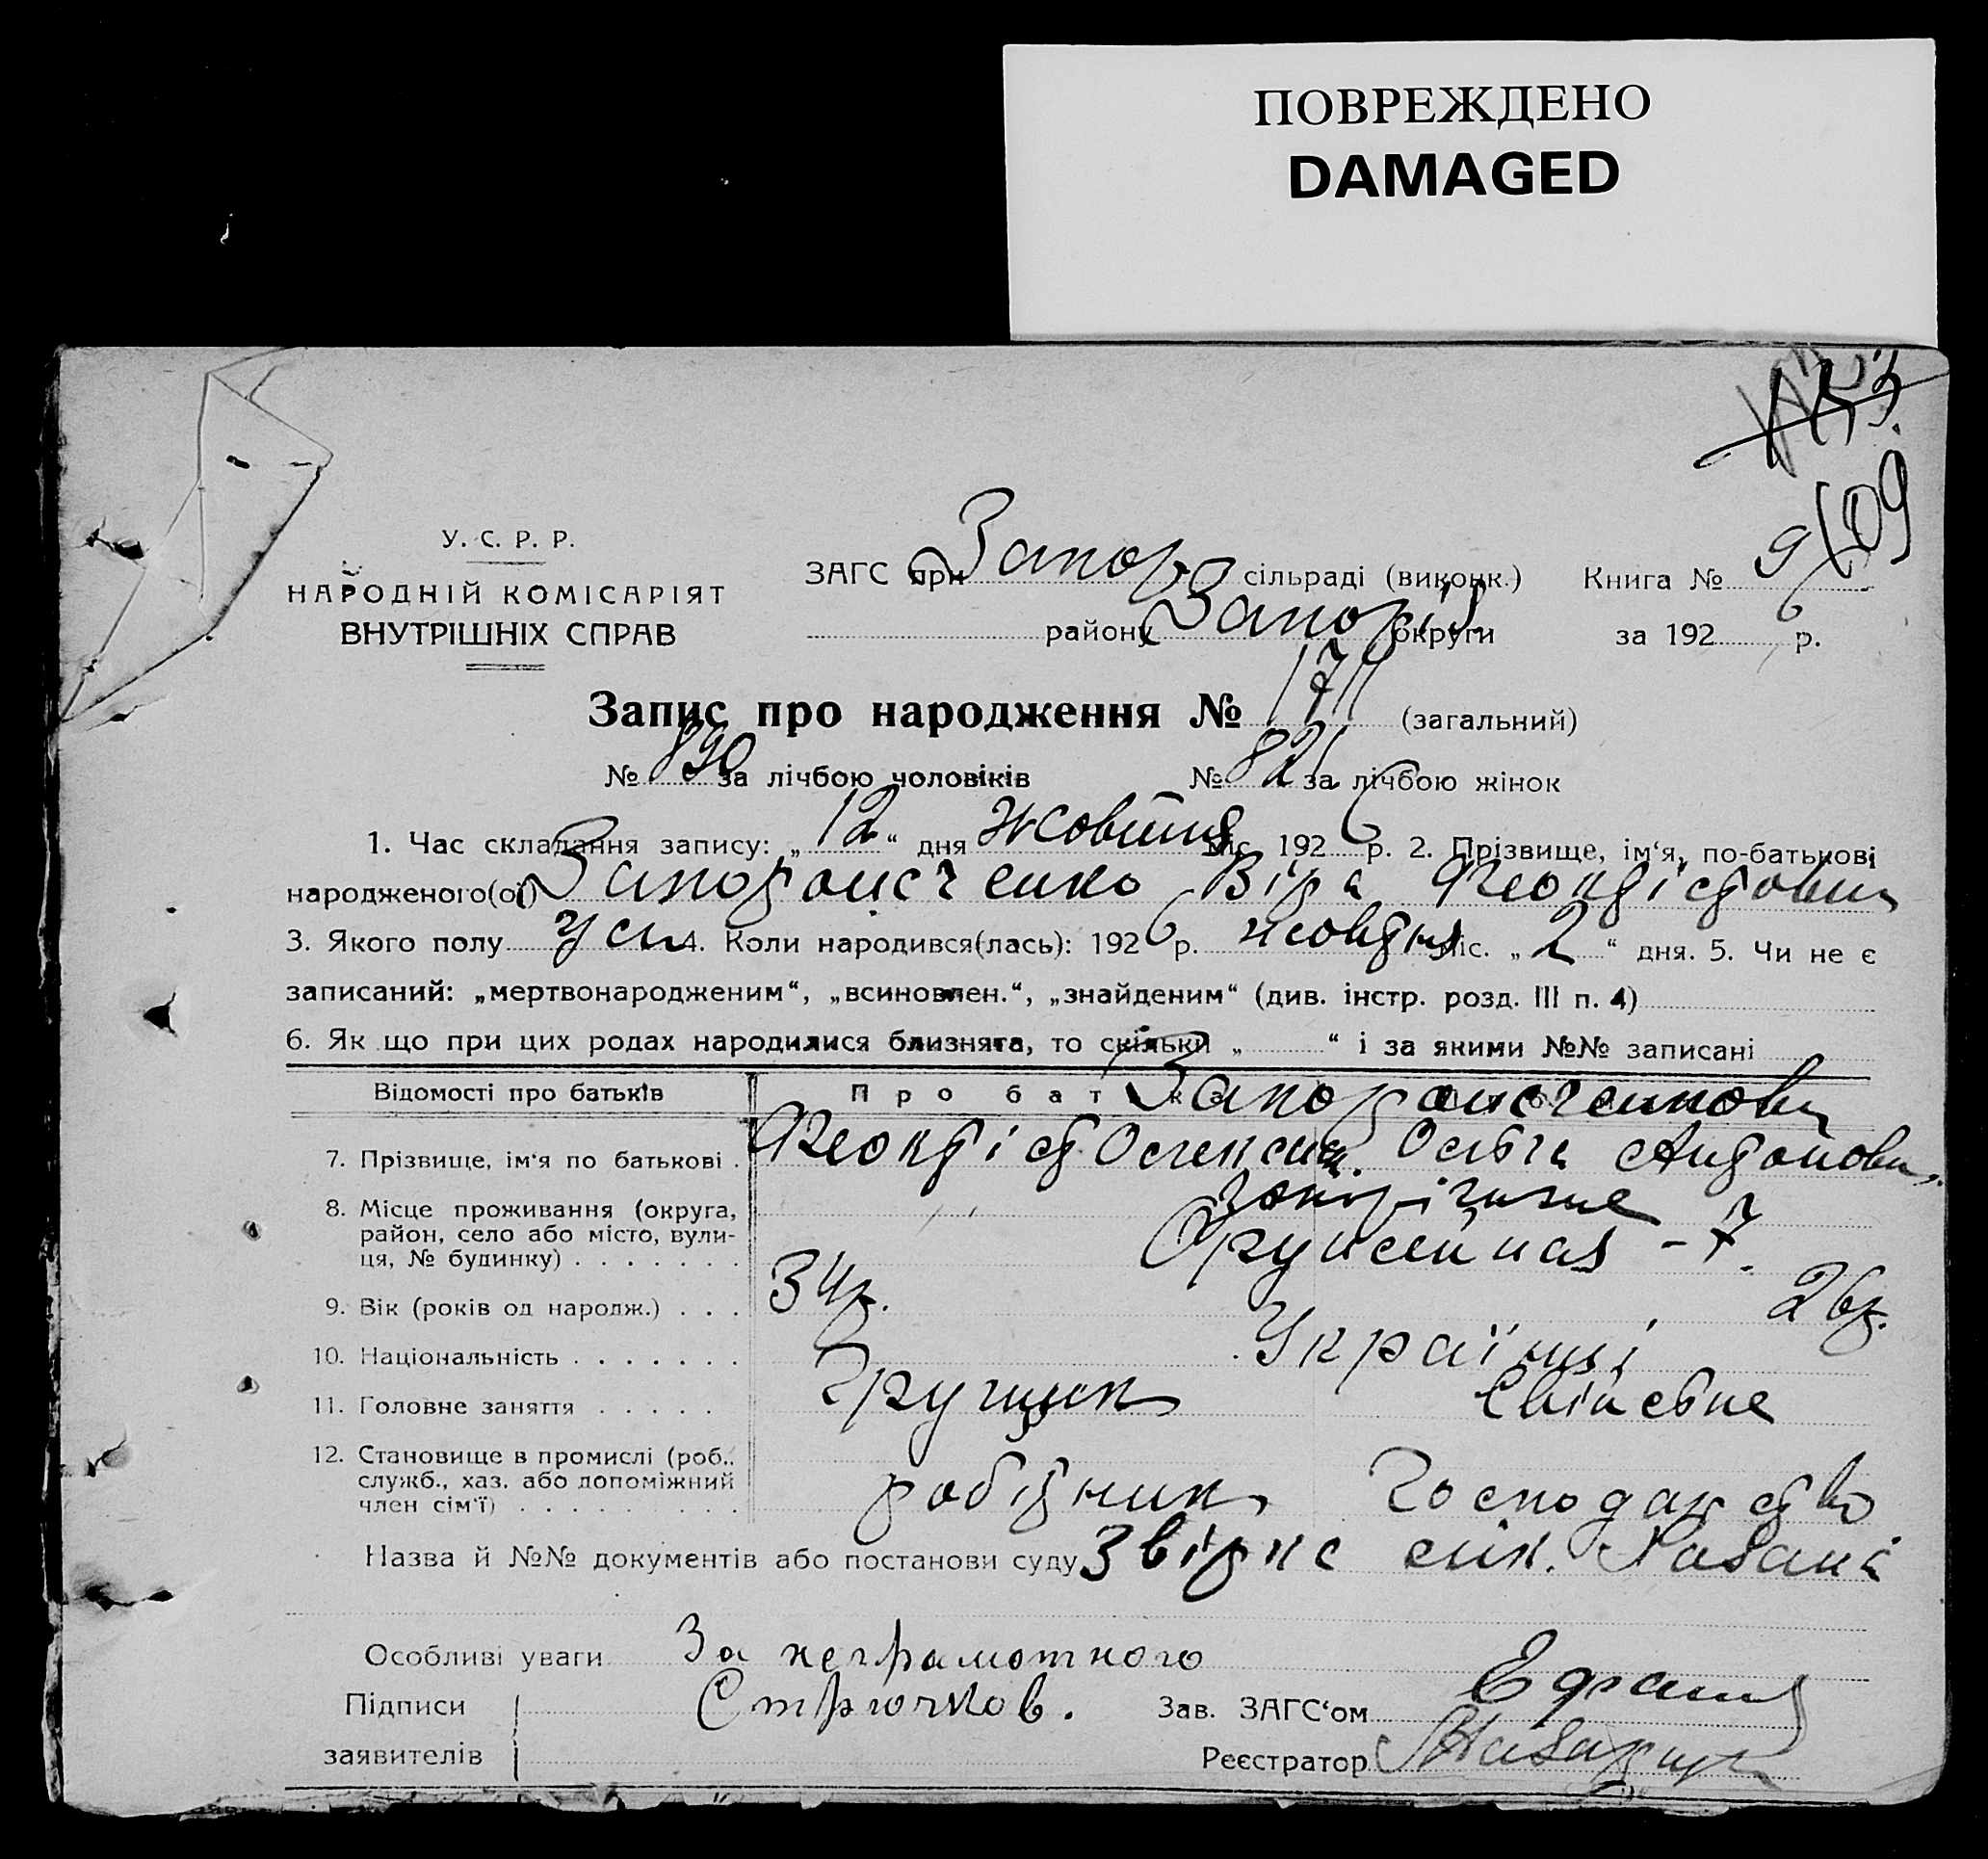 ПОВРЕЖДЕНО
DAMAGED
109
У. С. Р. Р.
НАРОДНІЙ КОМІСАРІЯТ
ВНУТРІШНІХ СПРАВ
ЗАГС при Запор сільраді (виконк.) Книга № 9
району Запоріз округи за 1926 р.
Запис про народження № 1711 (загальний)
№ 890 за лічбою чоловіків № 821 за лічбою жінок
1. Час складання запису: „12“ дня жовтня міс. 1926 р. 2. Прізвище, ім‘я, по-батькові
народженого(ої) Запорожченко Віра Феоктістовна
3. Якого полу 4. Коли народився(лась): 1926 р. жовтня міс. „2“ дня. 5. Чи не є
записаний: „мертвонародженим“, „всиновлен.“, „знайденим“ (див. інстр. розд. III п. 4)
6. Як що при цих родах народилися близнята, то скільки „ “ і за якими №№ записані
Відомості про батьків Про батька Запорожченкови
7. Прізвище, ім‘я по батькові . Феоктіст Олексієв. Ольга Антоновн.
8. Місце проживання (округа,
район, село або місто, вули-
ця, № будинку) . . . . . . . Запоріжжє
- 7.
9. Вік (років од народж.) . . . 34р. 26р.
10. Національність . . . . . . . Українці
11. Головне заняття . . . . . Грущик Свійське
12. Становище в промислі (роб.,
служб., хаз. або допоміжний
член сім‘ї) . . . . . . . . . робітник господарство
Назва й №№ документів або постанови суду Звірка
Особливі уваги За неграмотного
Підписи Стрючков. Зав. ЗАГС‘ом
заявителів Реєстратор